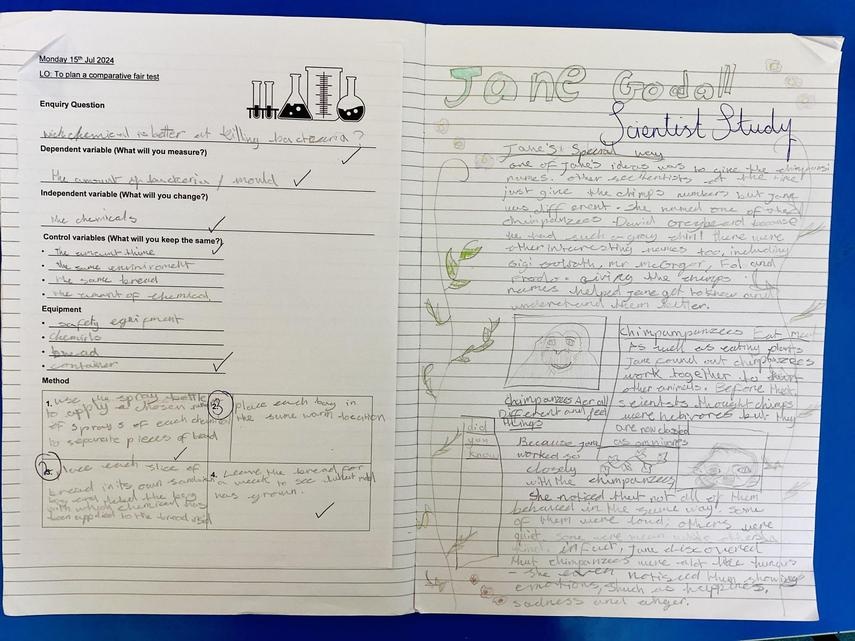 Monday 15th Jul 2024
LO: To plan a comparative fair test
Enquiry Question
wich chemical is better at killing bacteria?
Dependent variable (What will you measure?)
the amount of bacteria / mould
Independent variable (What will you change?)
the chemicals
Control variables (What will you keep the same?)
• The amount
• the same enviroment
• the same bread
• the amount of chemical
Equipment
• safety equipment
• chemicls
• bread
• container
Method
1. use the spray bottle
to apply a chosen
of sprays of each chemical
to separate pieces of bread
2. Place each slice of
bread in its own sandwich
bag and label the bag
with which chemical has
been applied to the bread
3 place each bag in
the same warm location
4. Leave the bread for
a week to see what mold
has grown.
Jane Godall
Scientist Study
Jane's Special way
one of Jane's ideas was to give the chimpansi
names. other at the time
just give the chimps numbers but Jane
was different. She named one of the
chimpanzees David because
he had such a gray chin! there were
other interesting names too, including
Gigi Goliath, Mr McGrgor, and
Frodo. Giving the chimps
names helped Jane get to know and
understand them better.
chimpampanzees Eat meat
As well as eating plants
Jane found out chimpanzees
work together to hunt
other animals. Before that,
scientists thought chimps
were hebivores but they
are now classed
as omnivores
chaimpanzees Aer all
Different and feel
things
did
you
know
Because Jane
worked so
closely
with the chimpanzees
She noticed that not all of them
behaved in the same way. Some
of them were loud; others were
quiet, some were mean while others
kind. infact, Jane discovered
that chimpanzees were alot like humans
- she even notised them showing
emotions, shuch as happines,
sadness and anger.